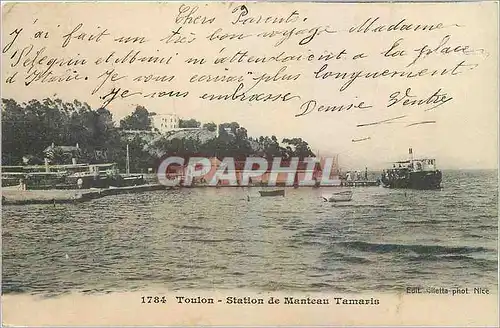 Chers Parents.
J'ai fait un très bon voyage Madame
Pélegrin et Mimi m'attendaient à la place
d'Hari. Je vous écrirai plus longuement.
Je vous embrasse
Denise Ventre
CPARAMA.com
1784 Toulon - Station de Manteau Tamaris
Edit. Giletta phot. Nice